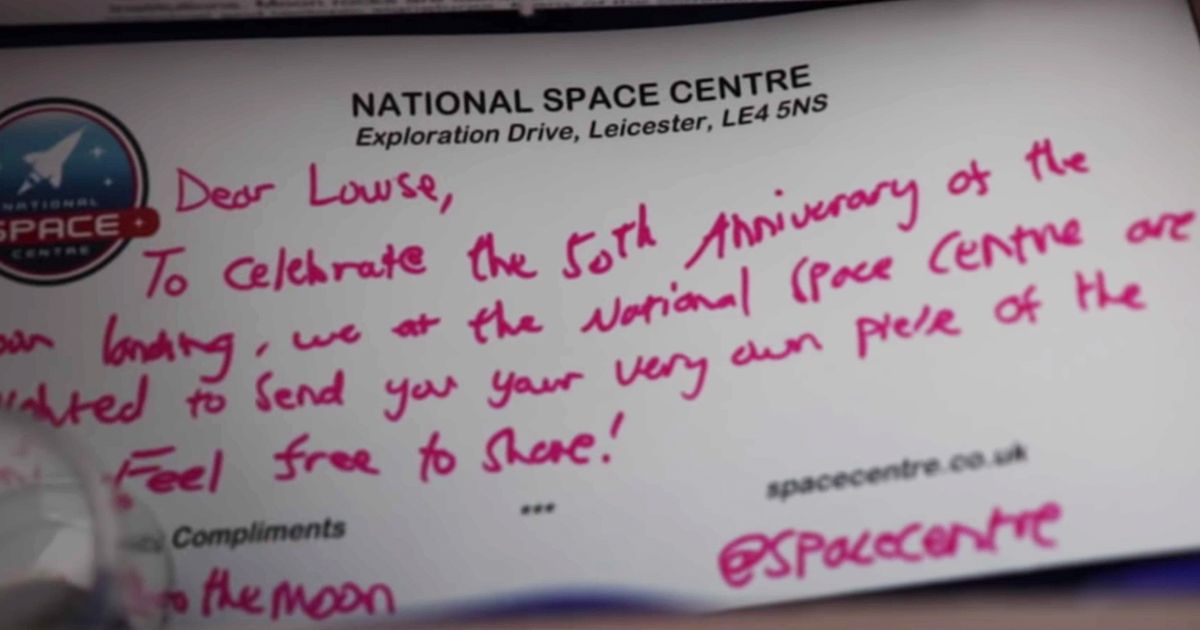 NATIONAL SPACE CENTRE
Exploration Drive, Leicester, LE4 5NS
NATIONAL
SPACE
CENTRE
Dear Louise,
To celebrate the 50th Anniversary of the
landing, we at the National Space Centre are
to send you your very own piece of the
Feel free to share!
Compliments
***
spacecentre.co.uk
to the moon
@spacecentre